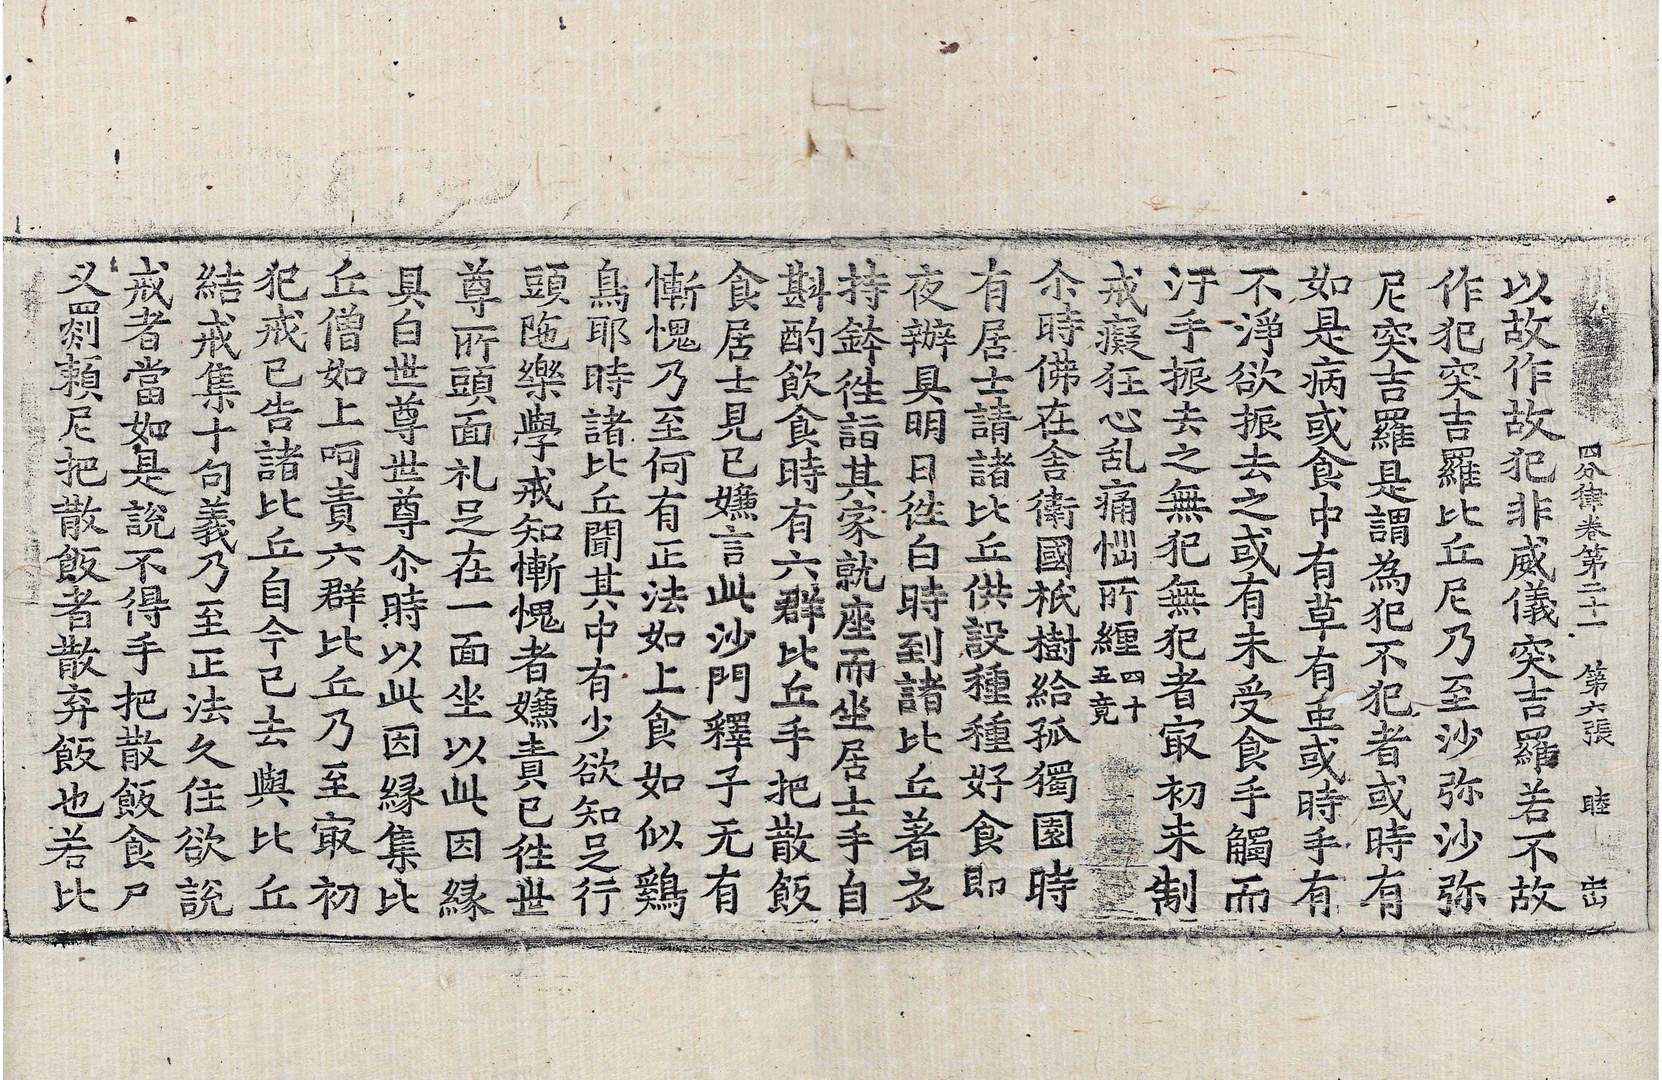 四分律卷第二十一 第六張 睦 岀
以故作故犯非威儀突吉羅若不故
作犯突吉羅比丘尼乃至沙弥沙弥
尼突吉羅是謂為犯不犯者或時有
如是病或食中有草有䖝或時手有
不淨欲振去之或有未受食手觸而
汙手振去之無犯無犯者㝡初未制
戒癡狂心乱痛惱所纏四十五竟
尒時佛在舍衛國祇樹給孤獨園時
有居士請諸比丘供設種種好食即
夜辦具明日徃白時到諸比丘著衣
持鉢徃詣其家就座而坐居士手自
斟酌飲食時有六群比丘手把散飯
食居士見已嫌言此沙門釋子无有
慚愧乃至何有正法如上食如似鷄
鳥耶時諸比丘聞其中有少欲知足行
頭陁樂學戒知慚愧者嫌責已徃世
尊所頭面礼足在一面坐以此因緣
具白世尊世尊尒時以此因緣集比
丘僧如上呵責六群比丘乃至㝡初
犯戒已告諸比丘自今已去與比丘
結戒集十句義乃至正法久住欲說
戒者當如是說不得手把散飯食尸
叉罽頼尼把散飯者散弃飯也若比